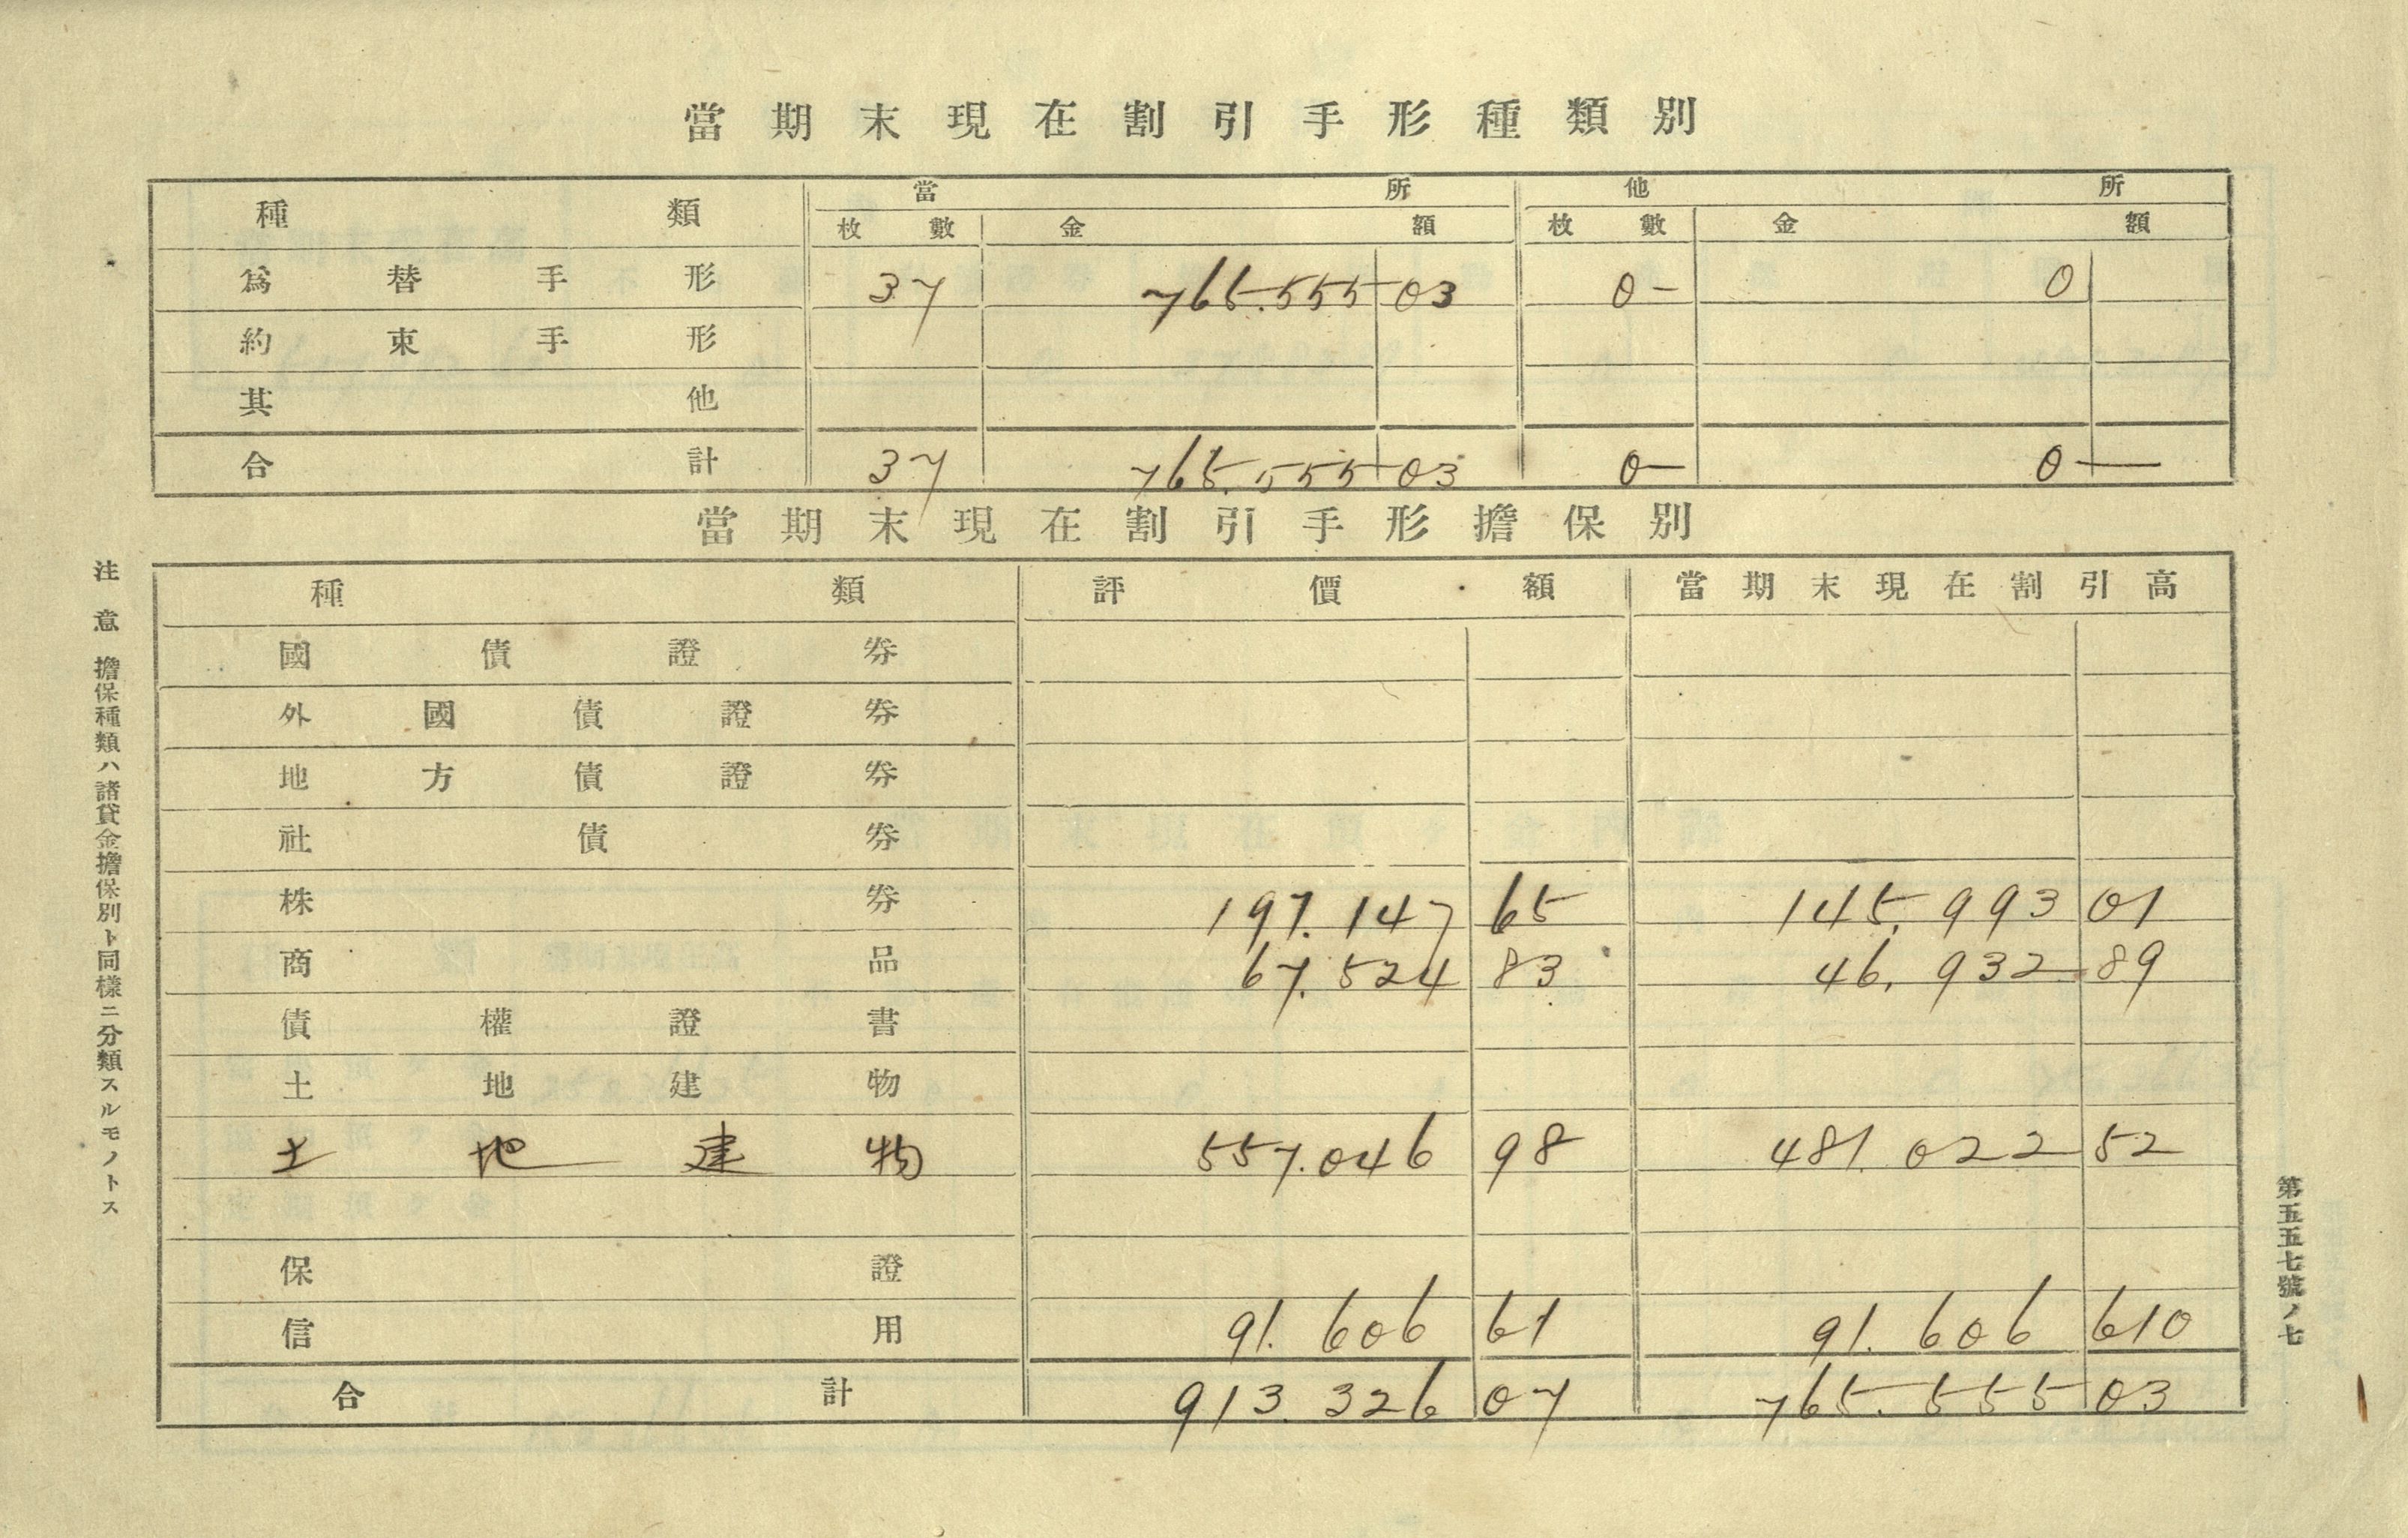 當期末現在割引手形種類別
種類 當所 他所
枚數 金額 枚數 金額
爲替手形 37 765.555 03 0- 0
約束手形
其他
合計 37 765.555 03 0- 0-
當期末現在割引手形擔保別
種類 評價額 當期末現在割引高
國債證券
外國債證券
地方債證券
社債券
株券 197.147 65 145.993 01
商品 67.524 83 46.932 89
債權證書
土地建物
土地建物 557.046 98 481.022 52
保證
信用 91.606 61 91.606 610
合計 913.326 07 765.555 03
注意 擔保種類ハ諸貸金擔保別ト同樣ニ分類スルモノトス
第五五七號ノ七